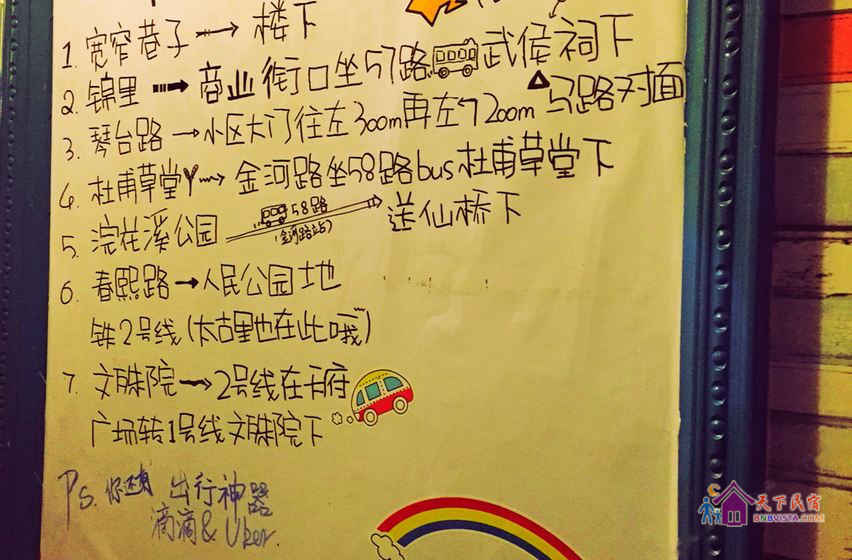 1. 宽窄巷子 → 楼下
2. 锦里 → 商业街口坐57路 武侯祠下
3. 琴台路 → 小区大门往左300m再左力200m 马路对面
4. 杜甫草堂 → 金河路坐58路bus杜甫草堂下
5. 浣花溪公园 58路 (金河路站) → 送仙桥下
6. 春熙路 → 人民公园地
铁2号线(太古里也在此哦~)
7. 文殊院 → 2号线在天府
广场转1号线文殊院下
Ps. 你还有 出行神器
滴滴 & Uber.
天下民宿
BNBVISTA.COM